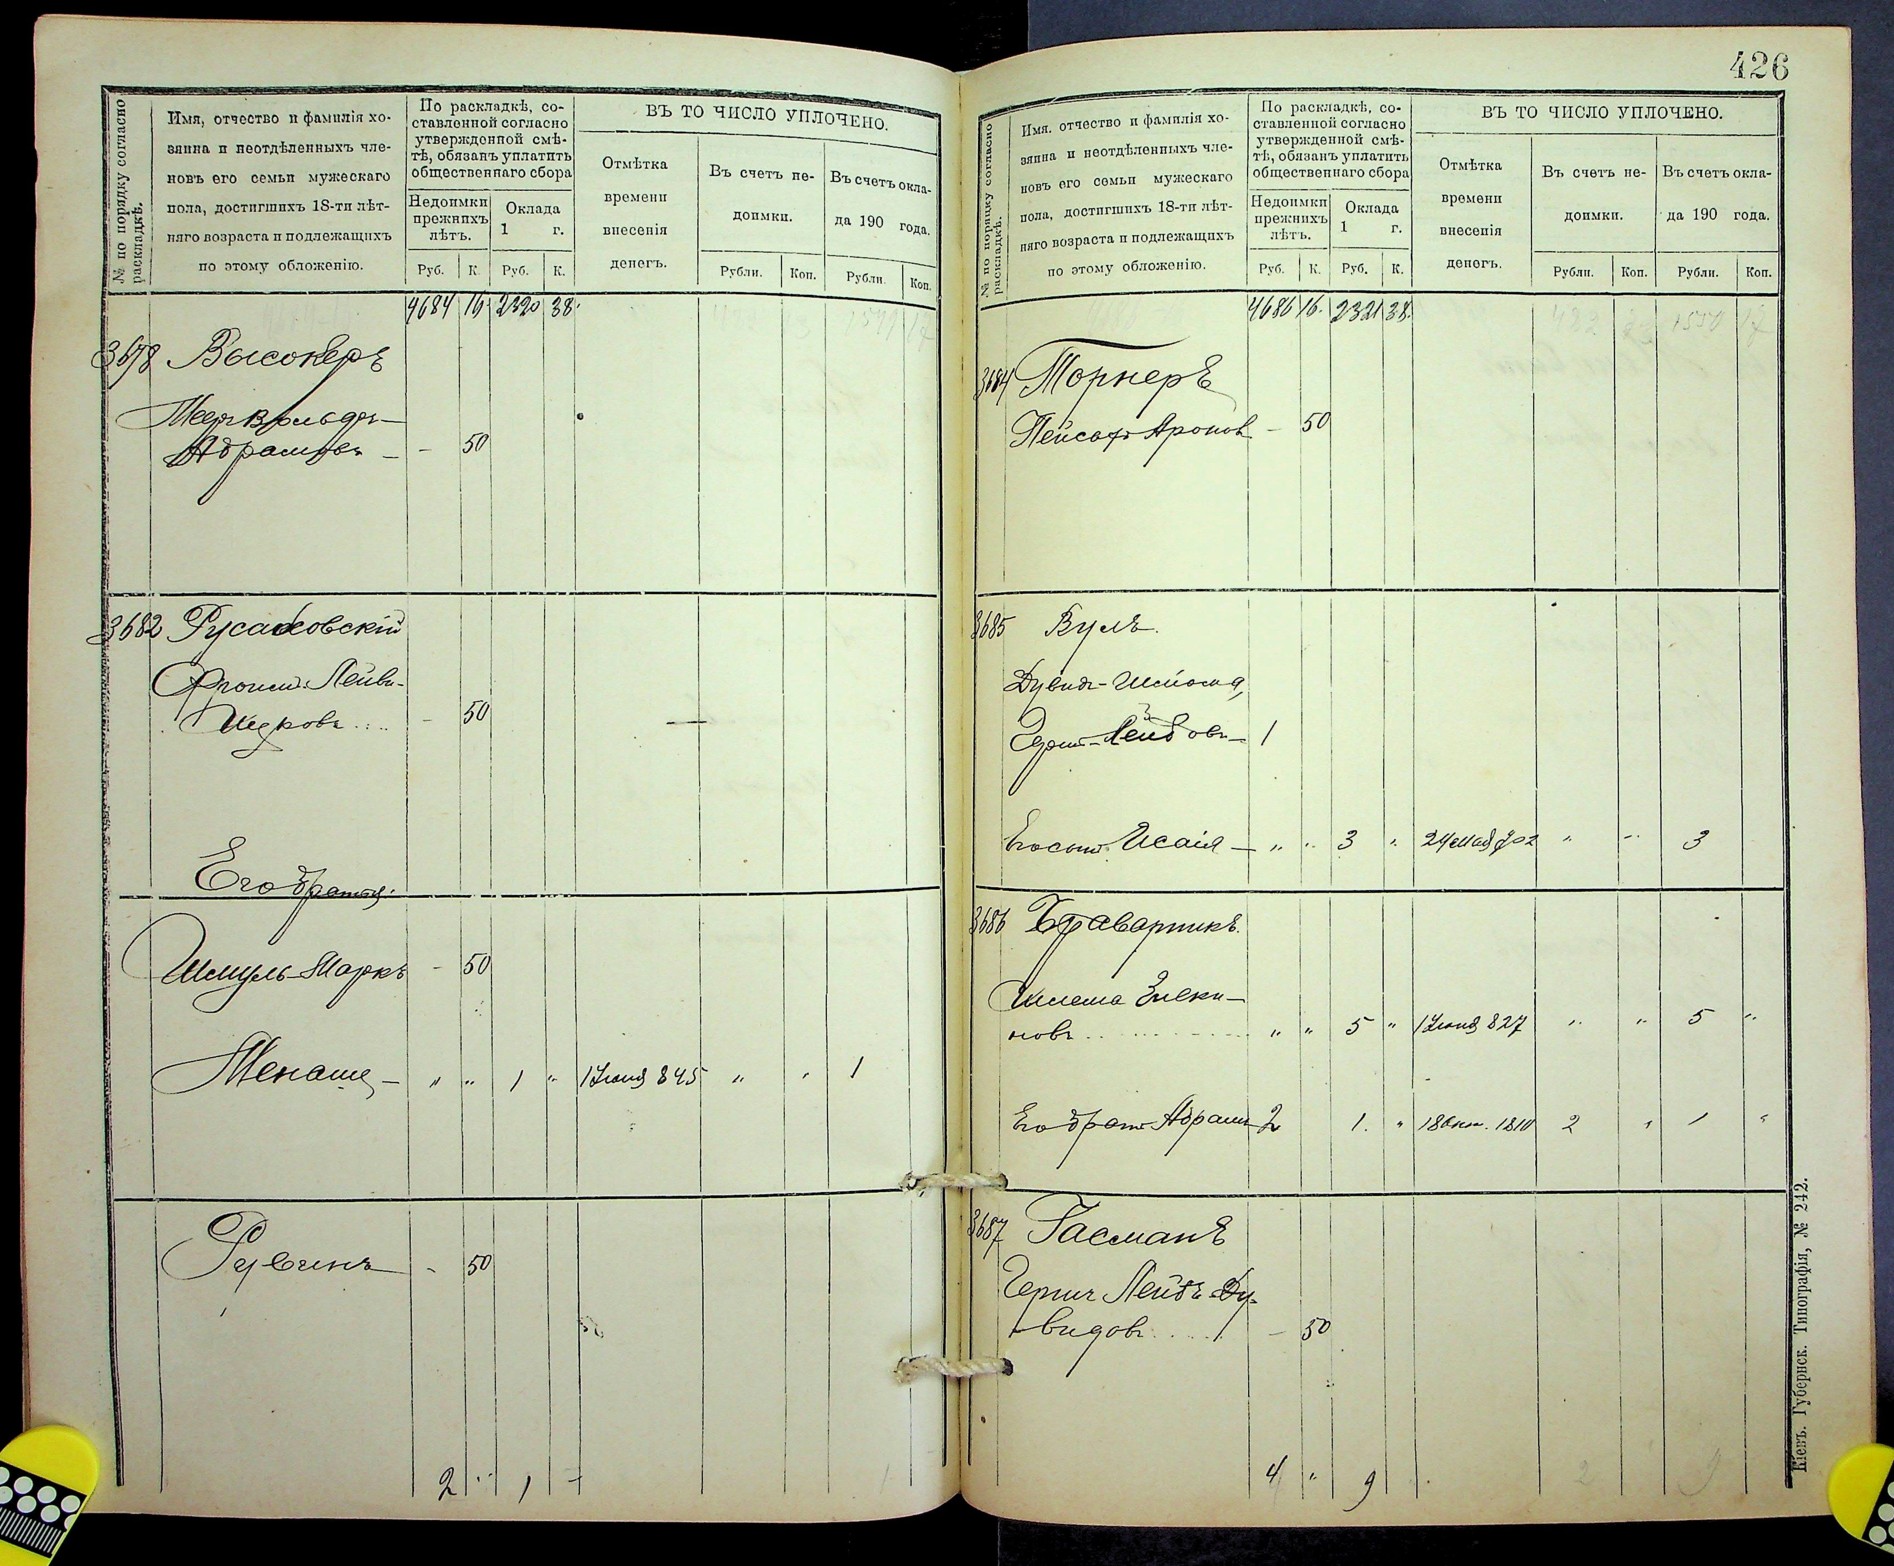 № по порядку согласно раскладкѣ.
Имя, отчество и фамилія хо-
зяина и неотдѣленныхъ чле-
новъ его семьи мужескаго
пола, достигшихъ 18-ти лѣт-
няго возраста и подлежащихъ
по этому обложенію.
По раскладкѣ, со-
ставленной согласно
утвержденной смѣ-
тѣ, обязанъ уплатить
общественнаго сбора
Недоимки
прежнихъ
лѣтъ.
Оклада
1 г.
Руб. К. Руб. К.
ВЪ ТО ЧИСЛО УПЛОЧЕНО.
Отмѣтка
времени
внесенія
денегъ.
Въ счетъ не-
доимки.
Рубли. Коп.
Въ счетъ окла-
да 190 года.
Рубли. Коп.
4684 16 2320 38
3678 Высокеръ
Абрамовъ — - 50
3682
Шмуль-Маркъ - 50
Его братья:
Менаше — „ „ 1 „ 1 Іюня 845 „ „ 1
Рувинъ - 50
2 „ 1 -
426
№ по порядку согласно раскладкѣ.
Имя, отчество и фамилія хо-
зяина и неотдѣленныхъ чле-
новъ его семьи мужескаго
пола, достигшихъ 18-ти лѣт-
няго возраста и подлежащихъ
по этому обложенію.
По раскладкѣ, со-
ставленной согласно
утвержденной смѣ-
тѣ, обязанъ уплатить
общественнаго сбора
Недоимки
прежнихъ
лѣтъ.
Оклада
1 г.
Руб. К. Руб. К.
ВЪ ТО ЧИСЛО УПЛОЧЕНО.
Отмѣтка
времени
внесенія
денегъ.
Въ счетъ не-
доимки.
Рубли. Коп.
Въ счетъ окла-
да 190 года.
Рубли. Коп.
4686 16. 2321 38.
3684 Торнеръ
Пейсахъ Ароновъ - 50
3685 Вулъ.
Дувидъ-Шлёма,
Лейбовъ — 1
Его сынъ Исаія — „ „ 3 „ 24 мая 702 „ „ 3
3686 Браварникъ.
Шлема Зиси-
новъ „ „ 5 „ 1 Іюня 827 „ „ 5 „
Его братъ Абрамъ 2 1. „ 18 окт. 1810 2 „ 1 „
3687 Гасманъ
Гершъ Лейбъ-Ду-
видовъ - 50
4 „ 9
Кіевъ. Губернск. Типографія, № 242.